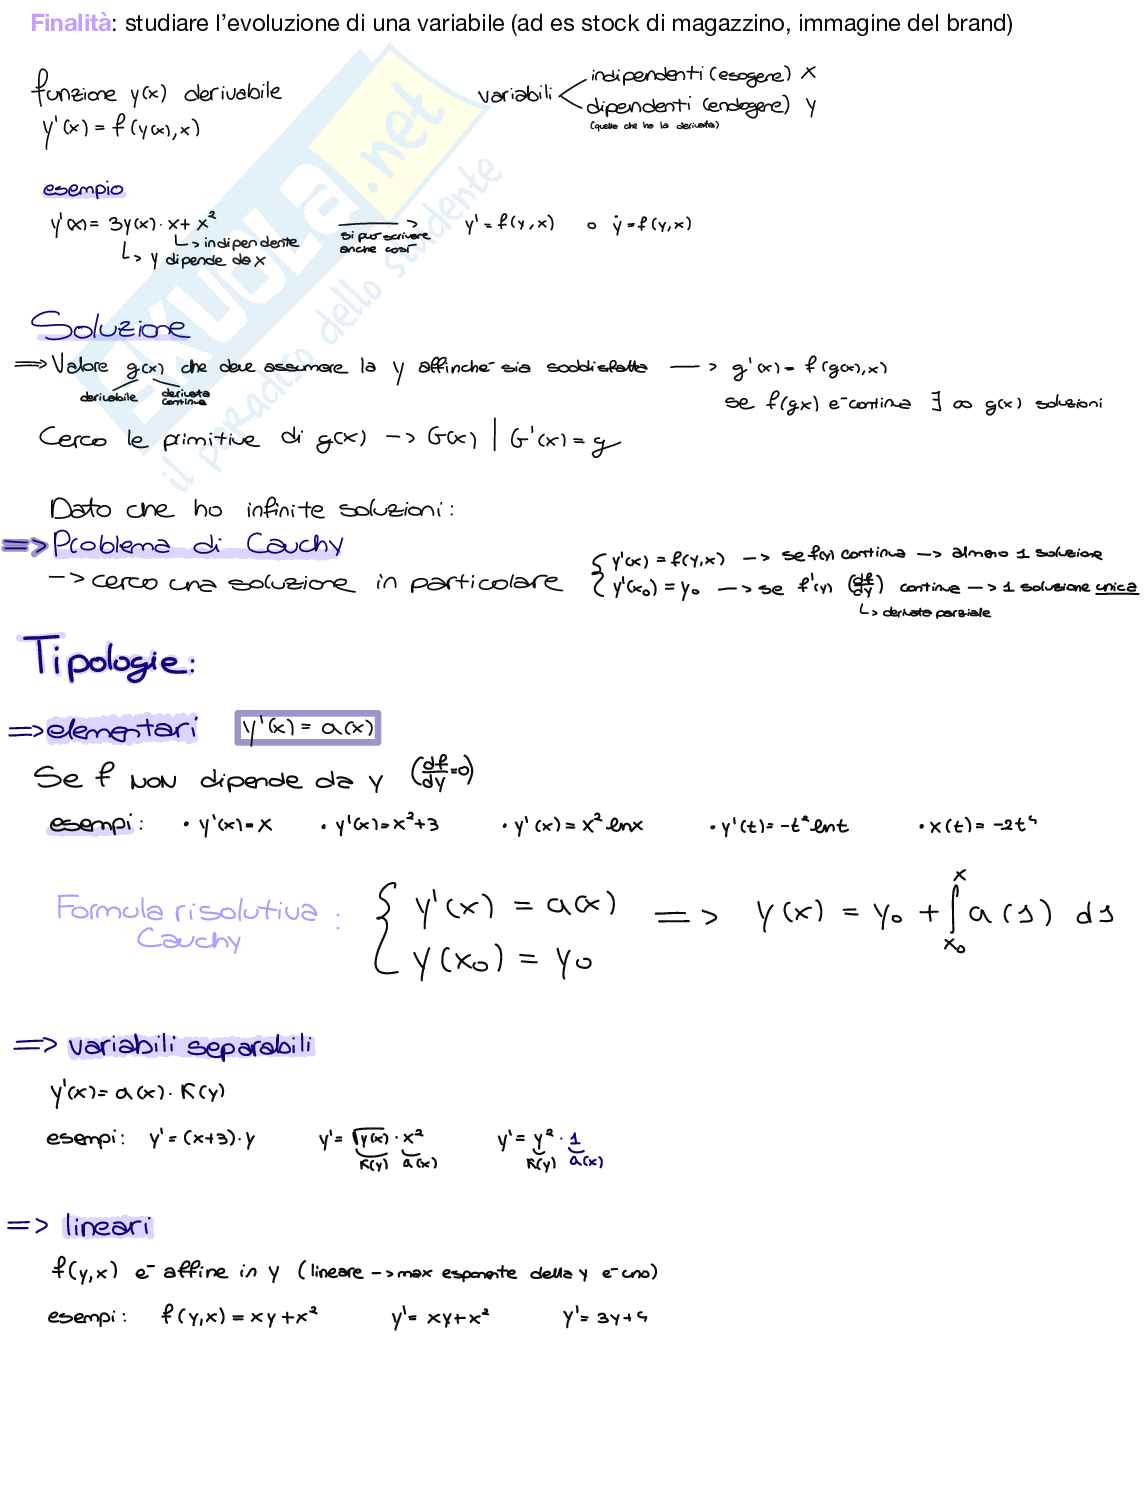 Finalità: studiare l'evoluzione di una variabile (ad es stock di magazzino, immagine del brand)
funzione y(x) derivabile
y'(x) = f(y(x),x)
variabili
indipendenti (esogene) x
dipendenti (endogene) y
(quelle che ho la derivata)
esempio
y'(x) = 3y(x)·x + x²
↳ indipendente
↳ y dipende da x
si può scrivere
anche così
y' = f(y,x) o ẏ = f(y,x)
Soluzione
⇒ Valore g(x) che deve assumere la y affinché sia soddisfatta → g'(x) = f(g(x),x)
derivabile derivata continua
se f(gx) è continua ∃ ∞ g(x) soluzioni
Cerco le primitive di g(x) → G(x) | G'(x) = g
Dato che ho infinite soluzioni:
⇒ Problema di Cauchy
→ cerco una soluzione in particolare
{ y'(x) = f(y,x) → se f(y) continua → almeno 1 soluzione
{ y'(x₀) = y₀ → se f'(y) (df/dy) continue → 1 soluzione unica
↳ derivata parziale
Tipologie:
⇒ elementari y'(x) = a(x)
Se f NON dipende da y (df/dy = 0)
esempi: • y'(x) = x • y'(x) = x²+3 • y'(x) = x² lnx • y'(t) = -t² lnt • x(t) = -2t⁴
Formula risolutiva :
Cauchy
{ y'(x) = a(x)
{ y(x₀) = y₀
⇒ y(x) = y₀ + ∫ₓ₀ˣ a(s) ds
⇒ variabili separabili
y'(x) = a(x)·K(y)
esempi: y' = (x+3)·y y' = √y(x) · x² y' = y² · 1
K(y) a(x) K(y) a(x)
⇒ lineari
f(y,x) è affine in y (lineare → max esponente della y è uno)
esempi: f(y,x) = xy + x² y' = xy + x² y' = 3y + 4
SKUOLA.net
il paradiso dello studente